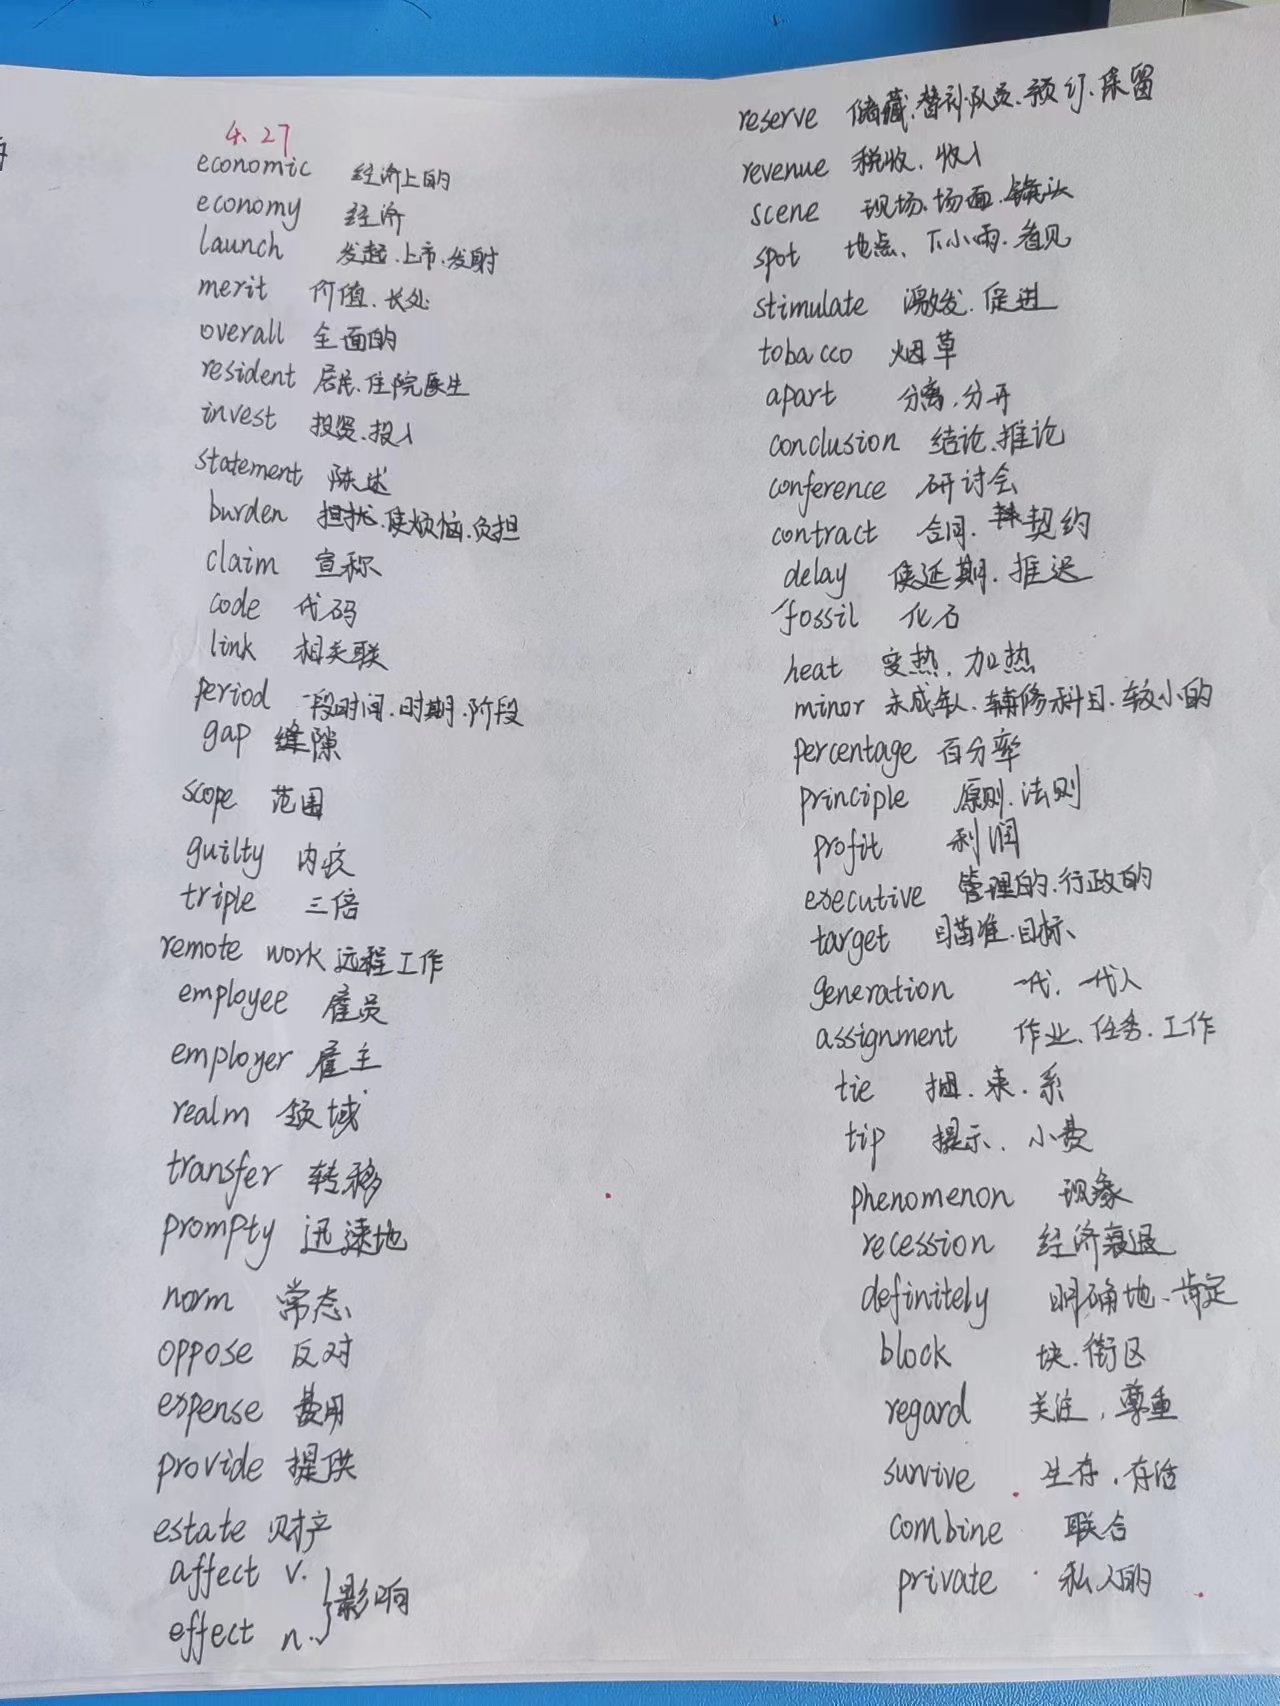 4.27
economic 经济上的
economy 经济
launch 发起、上市、发射
merit 价值、长处
overall 全面的
resident 居民、住院医生
invest 投资、投入
statement 陈述
burden 担扰、使烦恼、负担
claim 宣称
code 代码
link 相关联
period 一段时间、时期、阶段
gap 缝隙
scope 范围
guilty 内疚
triple 三倍
remote work 远程工作
employee 雇员
employer 雇主
realm 领域
transfer 转移
prompty 迅速地
norm 常态
oppose 反对
expense 费用
provide 提供
estate 财产
affect v.
影响
effect n.
reserve 储藏、替补队员、预订、保留
revenue 税收、收入
scene 现场、场面、镜头
spot 地点、下小雨、看见
stimulate 激发、促进
tobacco 烟草
apart 分离、分开
conclusion 结论、推论
conference 研讨会
contract 合同、契约
delay 使延期、推迟
fossil 化石
heat 变热、加热
minor 未成年人、辅修科目、较小的
percentage 百分率
principle 原则、法则
profit 利润
executive 管理的、行政的
target 瞄准、目标
generation 一代、一代人
assignment 作业、任务、工作
tie 捆、束、系
tip 提示、小费
phenomenon 现象
recession 经济衰退
definitely 明确地、肯定
block 块、街区
regard 关注，尊重
survive 生存，存活
combine 联合
private 私人的